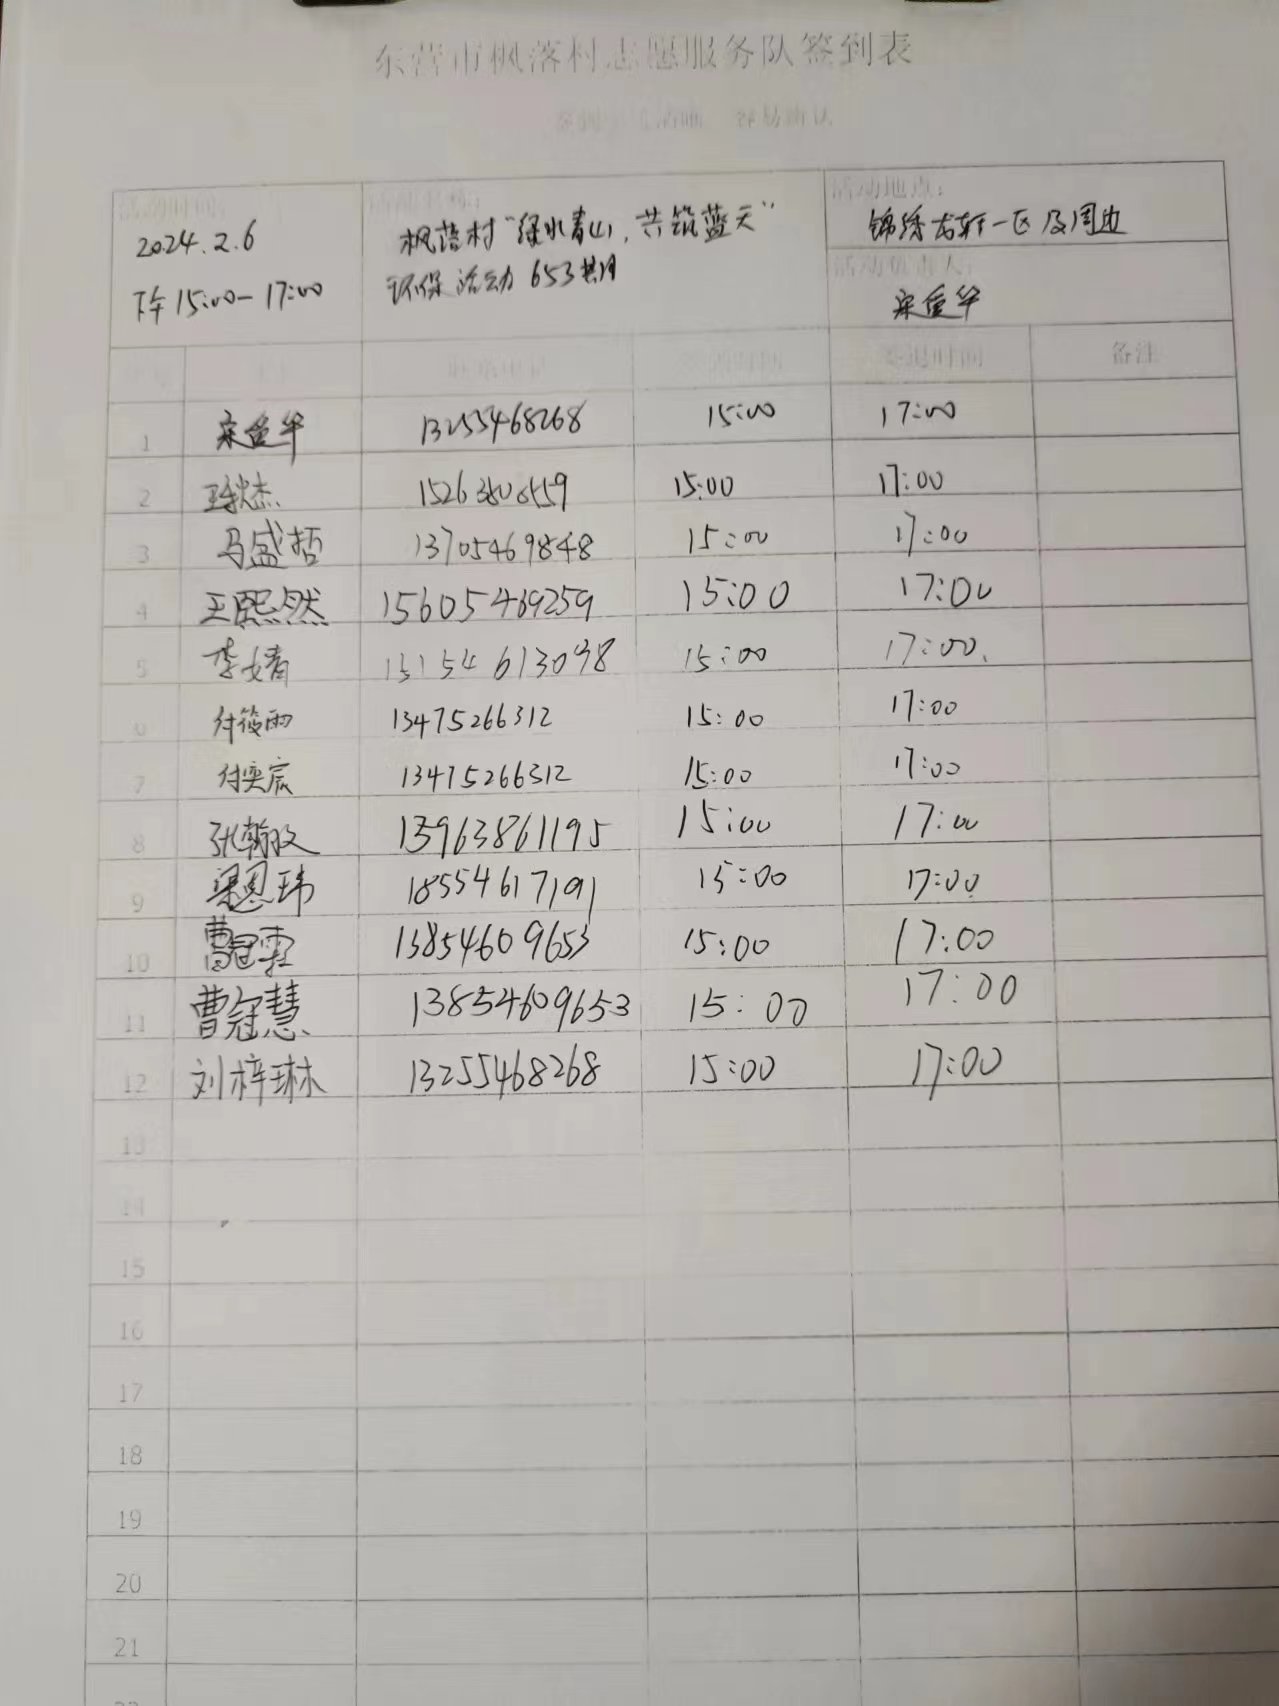 东营市枫落村志愿服务队签到表
活动时间：
2024.2.6
下午15:00-17:00
活动名称：
枫落村"绿水青山，共筑蓝天"
环保活动653期
活动地点：
锦绣龙轩一区及周边
活动负责人：
签到时间 签退时间 备注
1 13255468268 15:00 17:00
2 15:00 17:00
3 马盛哲 13705469848 15:00 17:00
4 王熙然 15605469259 15:00 17:00
5 李婧 15:00 17:00
6 付筱雨 13475266312 15:00 17:00
7 付奕宸 13475266312 15:00 17:00
8 张翰文 13963861195 15:00 17:00
9 梁恩玮 18554617191 15:00 17:00
10 曹冠霏 13854609653 15:00 17:00
11 曹冠慧 13854609653 15:00 17:00
12 刘梓琳 13255468268 15:00 17:00
13
14
15
16
17
18
19
20
21